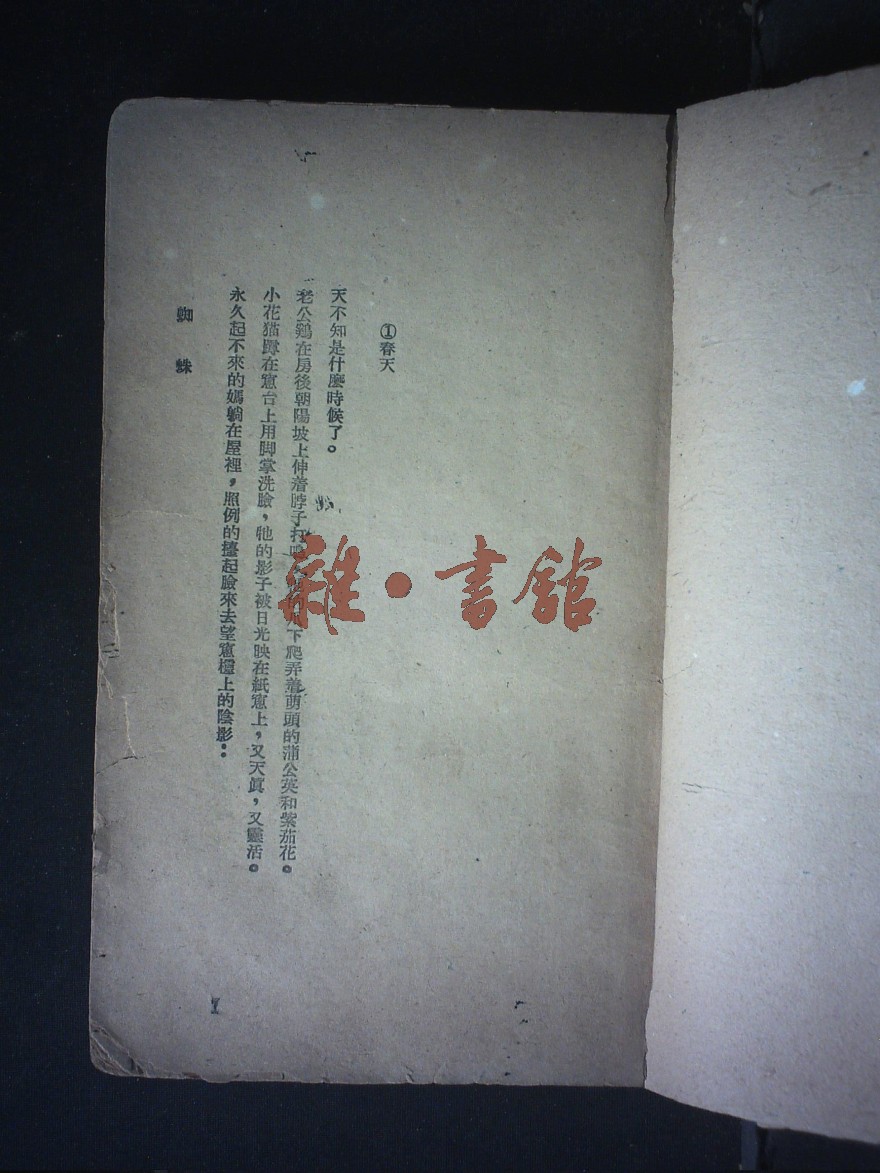 ①春天
天不知是什麼時候了。
老公鷄在房後朝陽坡上伸着脖子打 下爬弄着萌頭的蒲公英和紫茄花。
小花猫蹲在窻台上用脚掌洗臉，牠的影子被日光映在紙窻上，又天眞，又靈活。
永久起不來的媽躺在屋裡，照例的擡起臉來去望窻櫺上的陰影：
蜘蛛
1
雜·書館